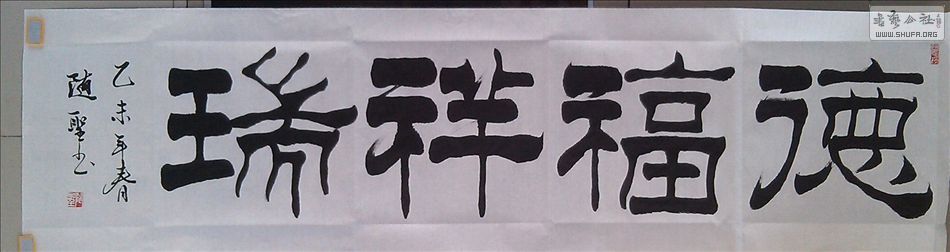 德福祥瑞
乙未年春
随聖书
書藝公社
WWW.SHUFA.ORG